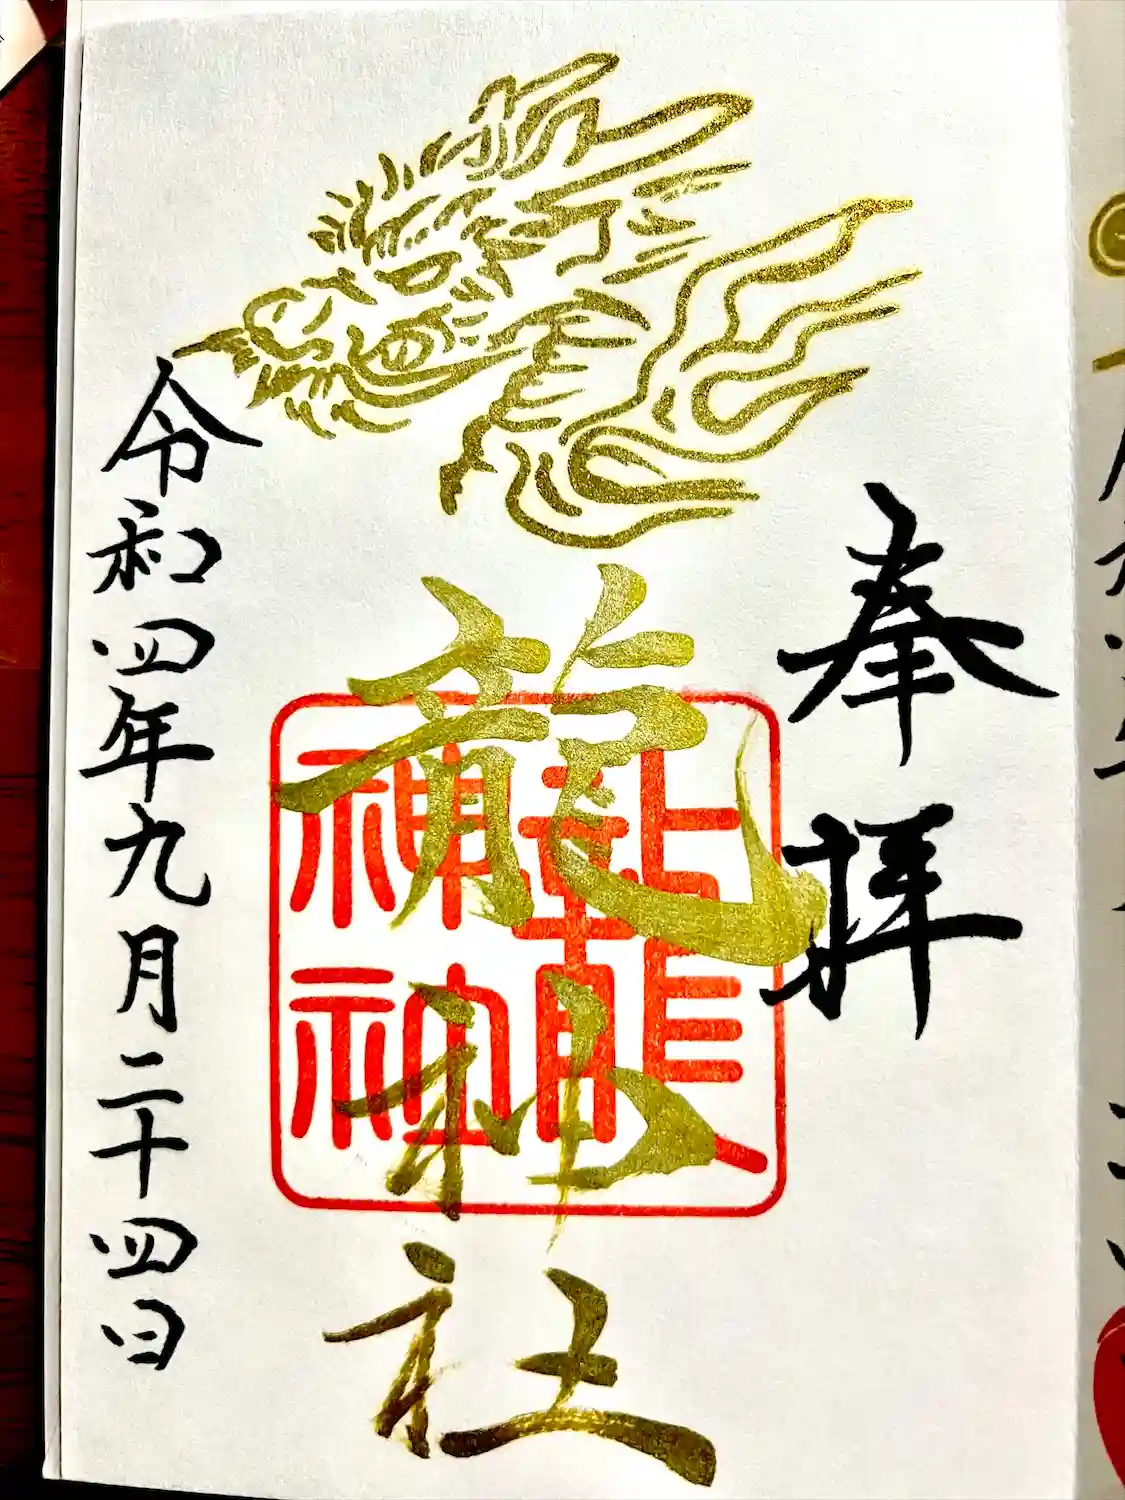 奉拝
龍神社
龍神
神社
令和四年九月二十四日